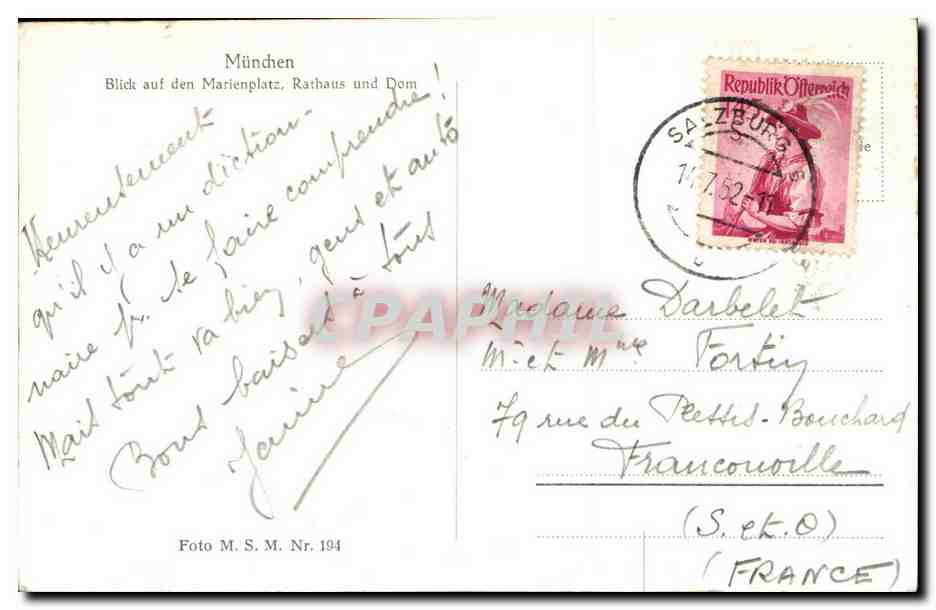 München
Blick auf den Marienplatz, Rathaus und Dom
Heureusement
qu'il y a un diction-
naire pr. se faire comprendre!
Mais tout va bien, gens et auto
Bons baisers à tous
Janine
Foto M. S. M. Nr. 194
Republik Österreich
SALZBURG
7.52-11
Madame Darbelet
M. et Mme Fortin
79 rue du Plessis-Bouchard
Franconville
(S. et O)
(FRANCE)
CPAPHIL